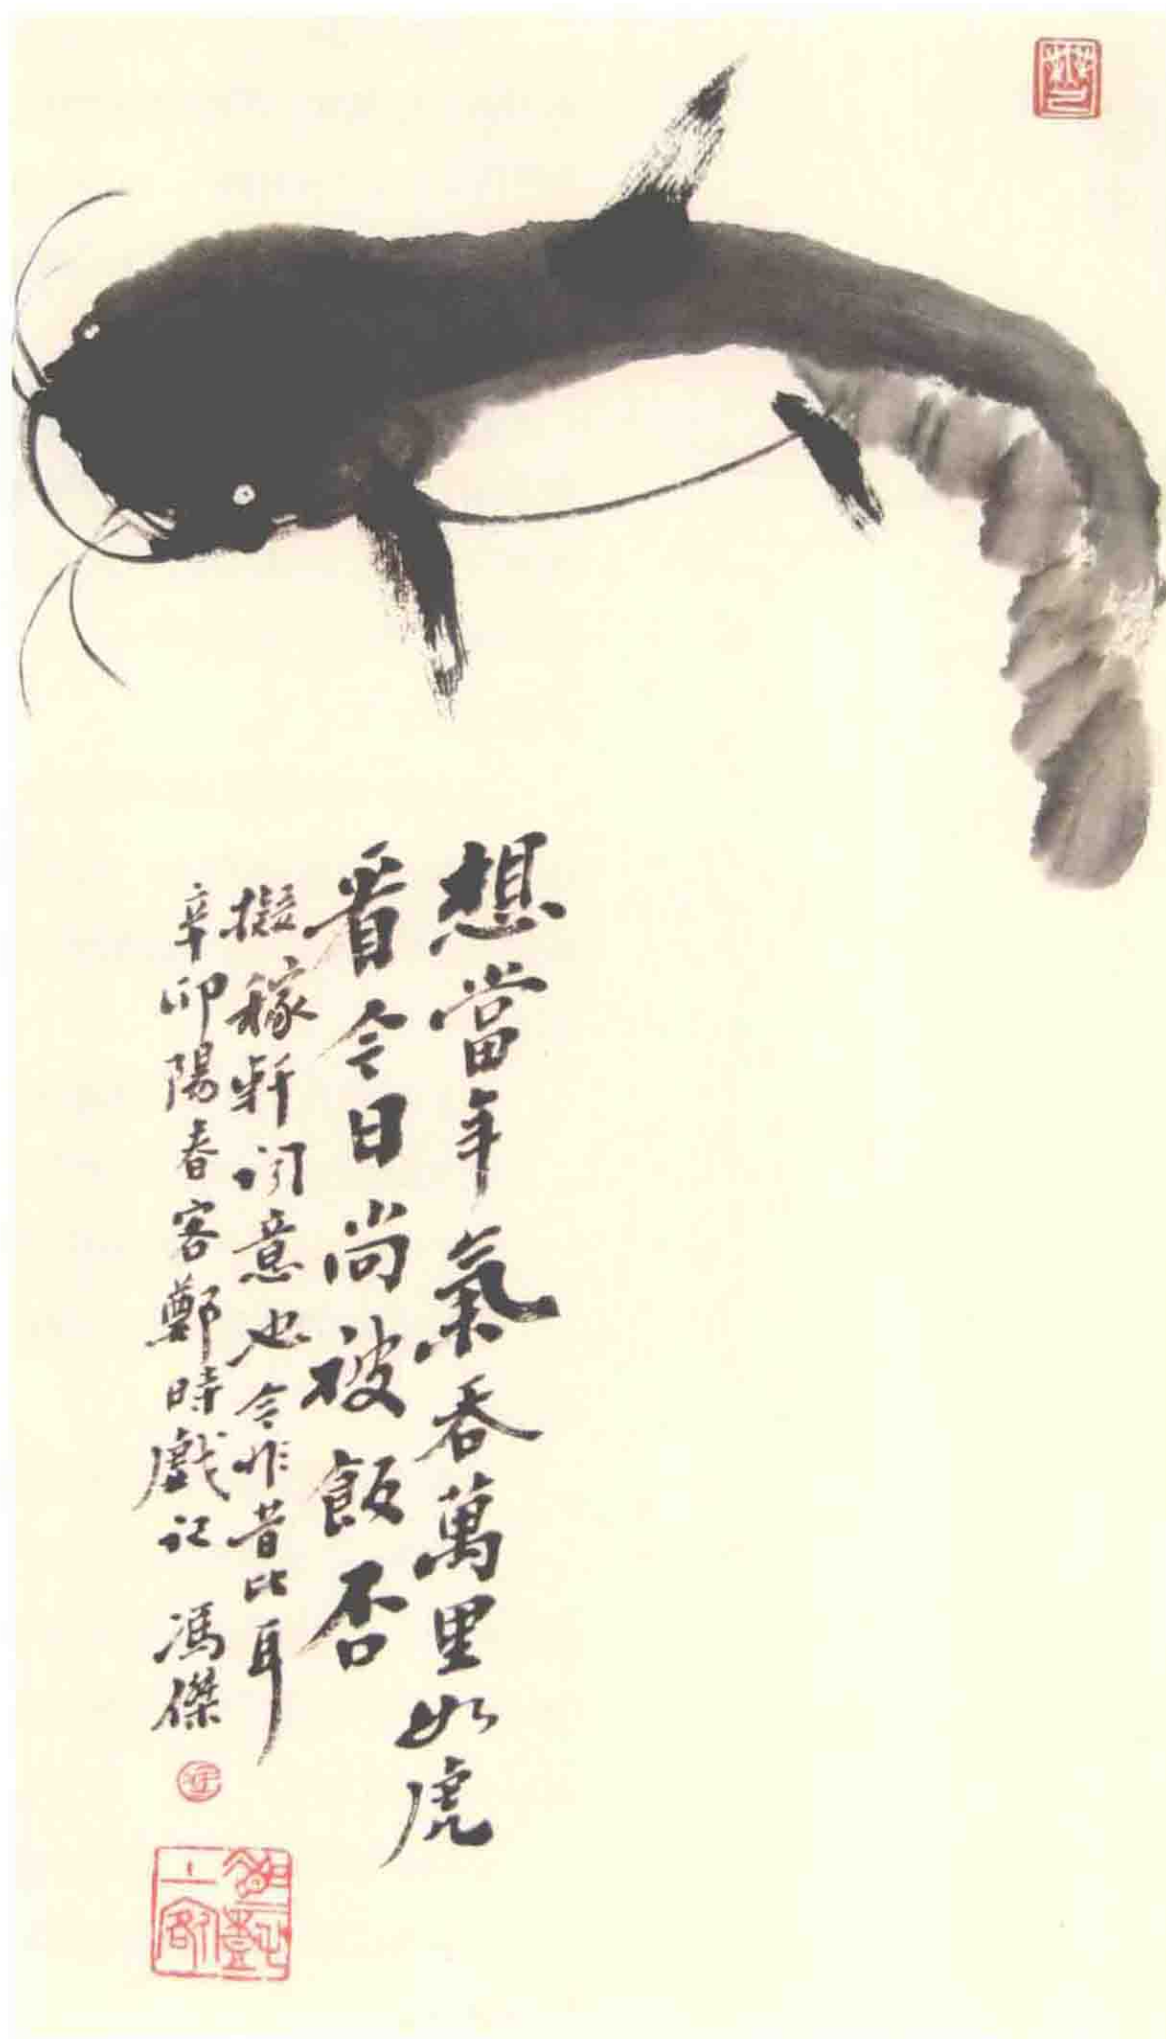 想當年氣吞萬里如虎
看今日尚被飯否
擬稼軒词意也今昨昔比耳
辛卯陽春客鄭時戲记 馮傑